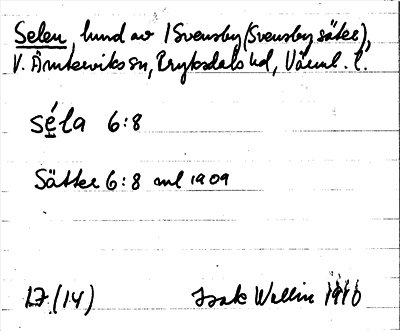 Selen, lund av 1 Svensby (Svensby säter),
V. Ämterviks sn, Fryksdals hd, Värml. l.
séla 6:8
Sätter 6:8 enl 1909
17 (14) Isak Wallin 1910